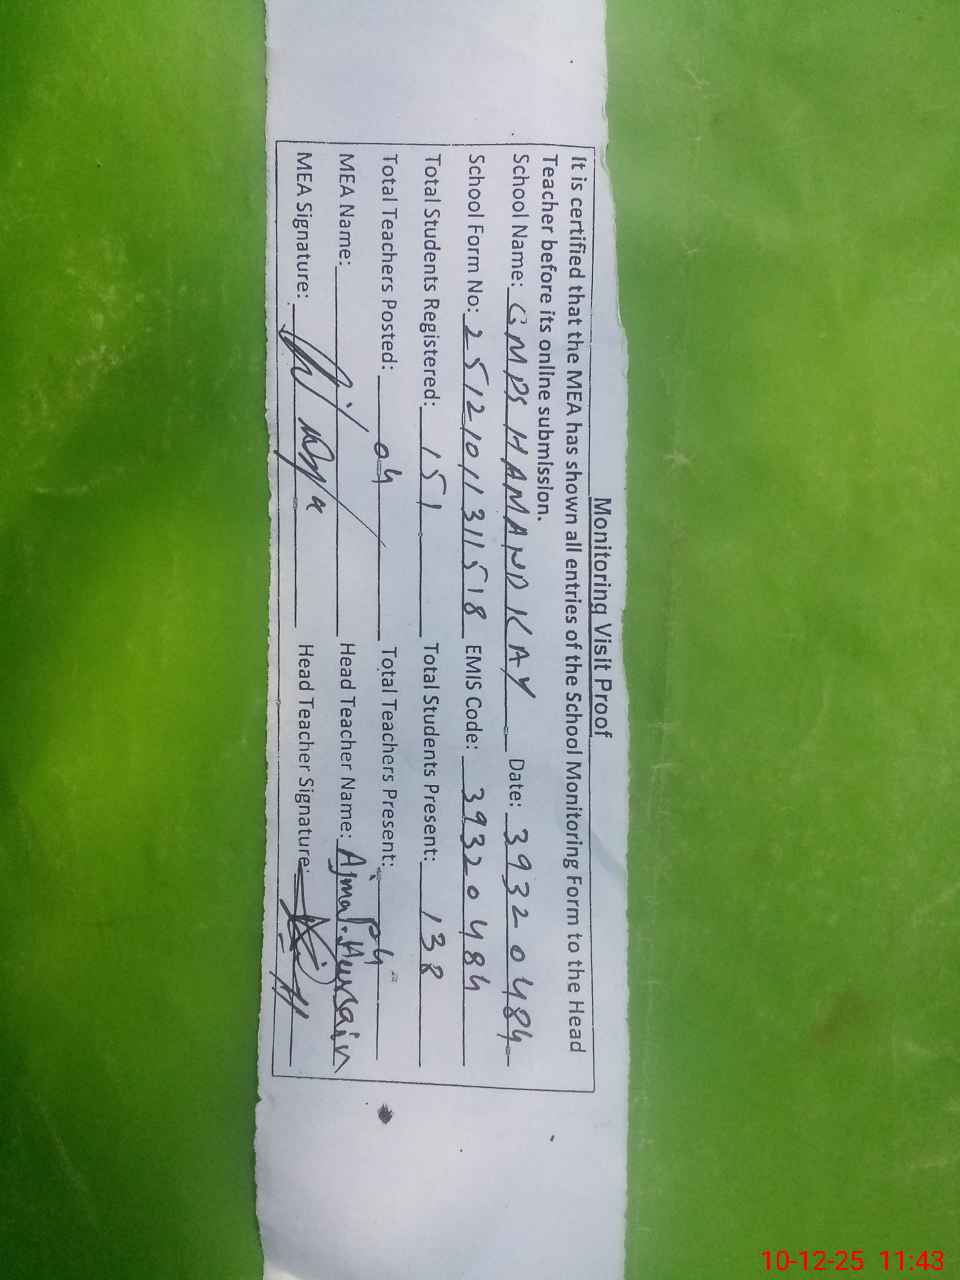 Monitoring Visit Proof
It is certified that the MEA has shown all entries of the School Monitoring Form to the Head
Teacher before its online submission.
School Name: GMPS HAMANDKAY Date: 39320484
School Form No: 2512101131518 EMIS Code: 39320484
Total Students Registered: 151 Total Students Present: 138
Total Teachers Posted: 04 Total Teachers Present: 04
MEA Name: Head Teacher Name: Ajmal Hussain
MEA Signature: Head Teacher Signature:
10-12-25 11:43